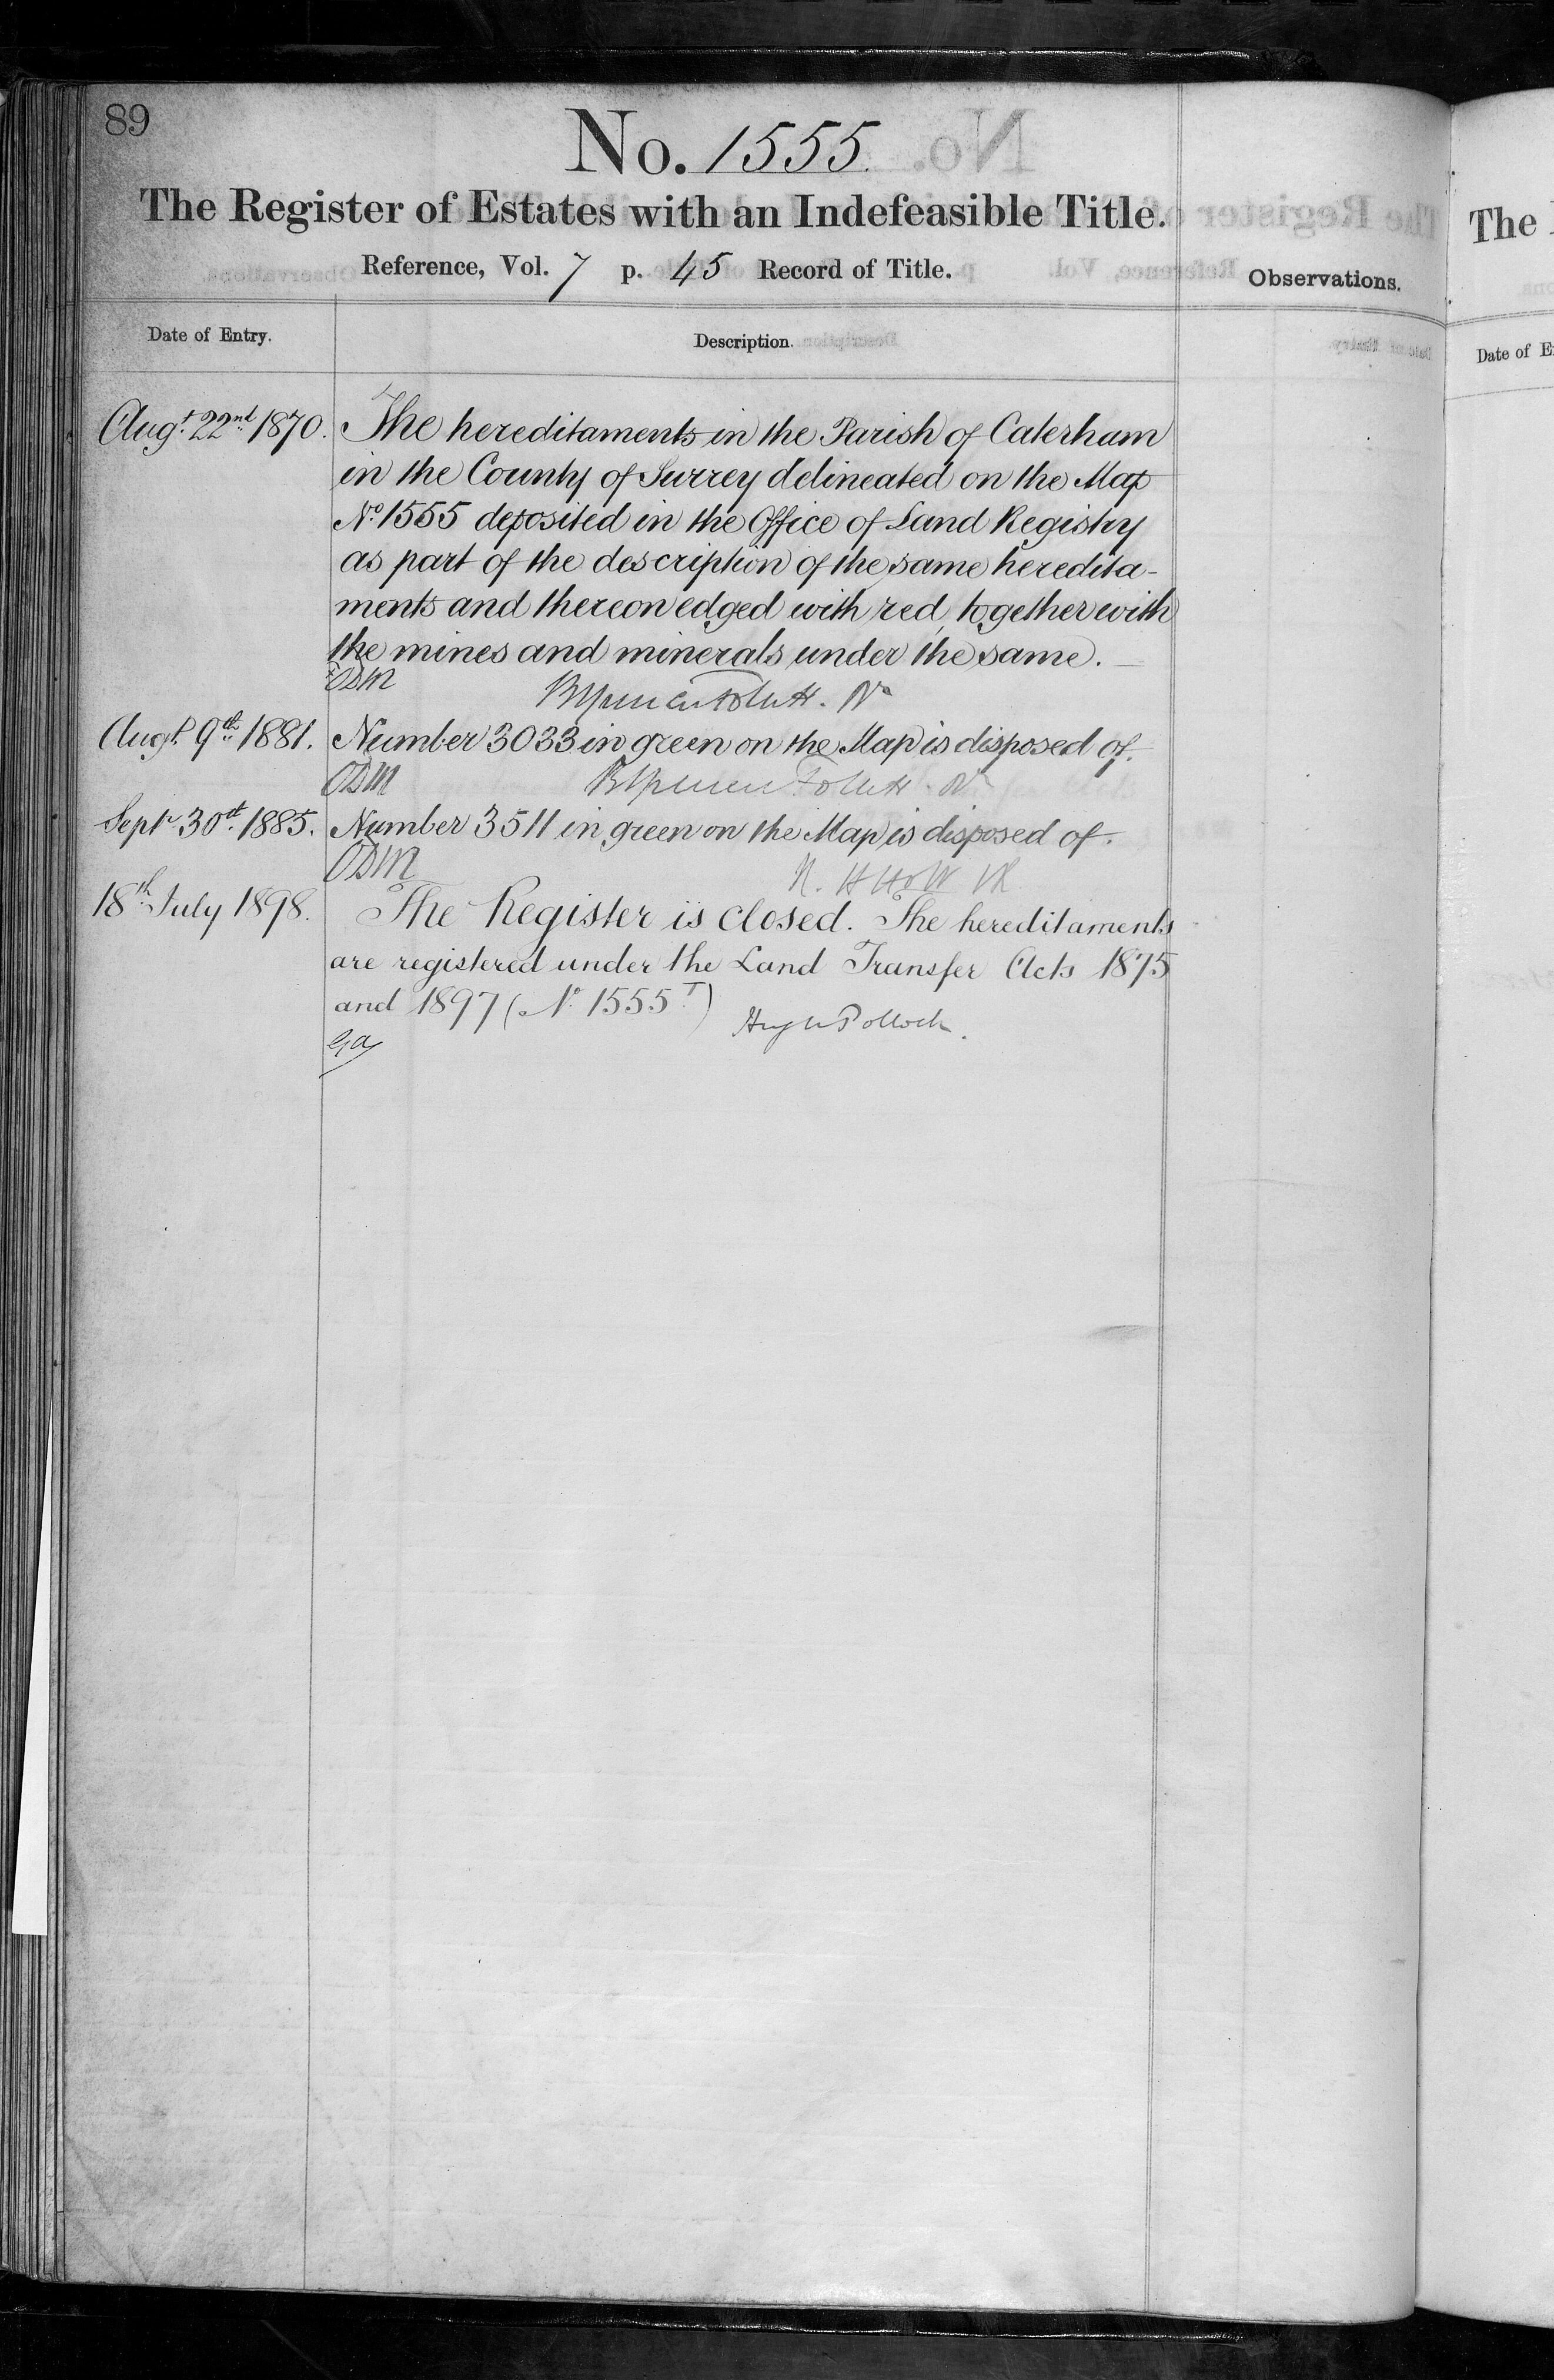 89
No. 1555.
The Register of Estates with an Indefeasible Title.
Reference, Vol. 7 p. 45 Record of Title.
Observations.
Date of Entry.
Description.
Augt. 22nd 1870. The hereditaments in the Parish of Caterham
in the County of Surrey delineated on the Map
No. 1555 deposited in the Office of Land Registry
as part of the description of the same heredita-
ments and thereon edged with red, together with
the mines and minerals under the same.
ODM
Augt. 9th 1881. Number 3033 in green on the Map is disposed of.
ODM
Septr. 30th 1885. Number 3511 in green on the Map is disposed of.
ODM
18th July 1898. The Register is closed. The hereditaments
are registered under the Land Transfer Acts 1875
and 1897 (No. 1555T)
Hugh Pollock.
The
Date of E